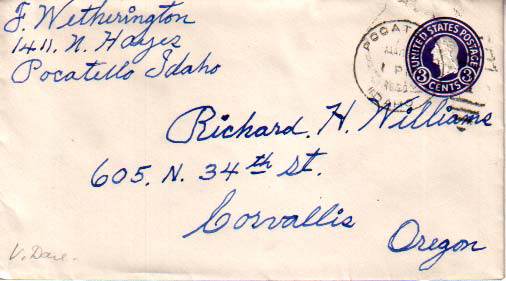 F. Wetherington
1411. N. Hayes
Pocatello Idaho
POCAT
1 P
IDAHO
UNITED STATES POSTAGE
3 3
CENTS
Richard. H. Williams
605. N. 34th st.
Corvallis
Oregon
V. Dare.